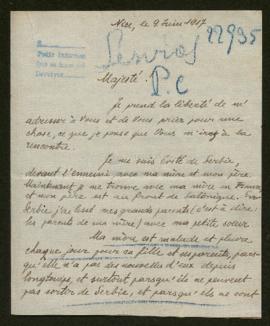 Nice, le 9 Juin 1917
22935
P.C
Majesté!
Je prend la liberté de m'
adresser à Vous et de Vous prier pour une
chose, ce que je pense que Vous m'irez à la
rencontre.
Je me suis évité de Serbie,
devant l'ennemi avec ma mère et mon père.
Maintenant je me trouve avec ma mère en France,
et mon père est au front de Salonique. En
Serbie j'ai laissé mes grands parents (c'est à dire:
les parents de ma mère) avec ma petite soeur.
Ma mère est malade et pleure
chaque jour pour sa fille et ses parents, pars-
qu'elle n'a pas des nouvelles d'eux depuis
longtemps, et surtout parsqu'ils ne peuvent
pas sortir de Serbie, et parsque ils ne sont